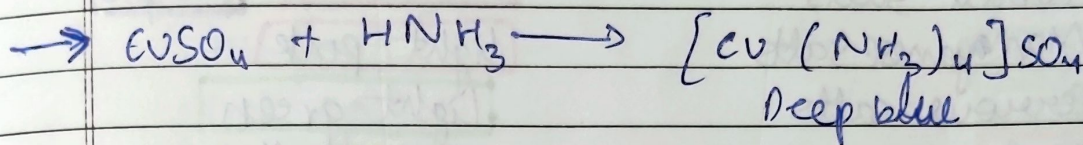 → CUSO₄ + 4NH₃ ⟶ [CU (NH₃)₄]SO₄
Deep blue